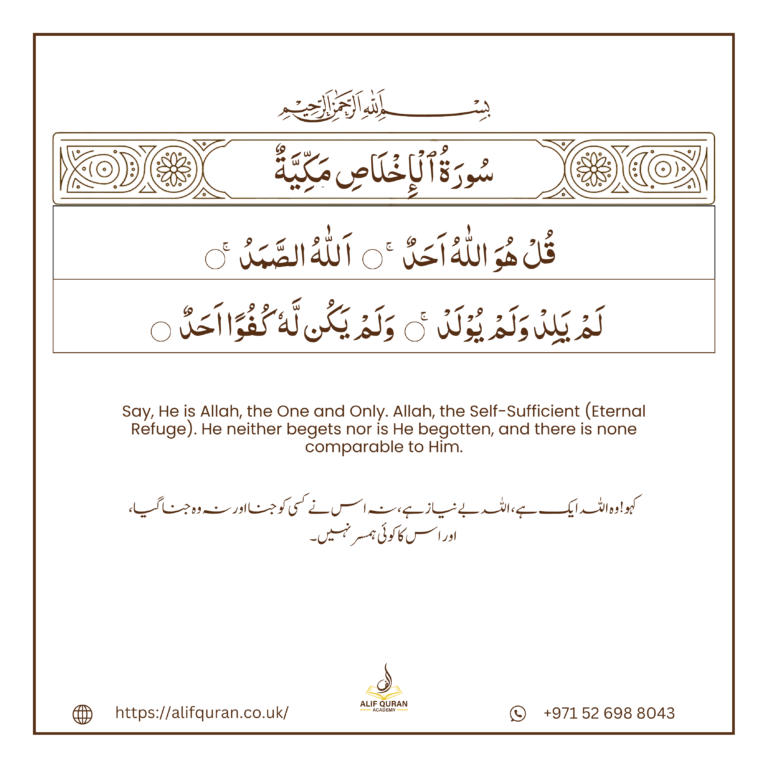 بِسْمِ اللهِ الرَّحْمٰنِ الرَّحِيْمِ
سُورَةُ ٱلْإِخْلَاصِ مَكِّيَّةٌ
قُلْ هُوَ اللّٰهُ اَحَدٌ ۚ ۝ اَللّٰهُ الصَّمَدُ ۚ ۝
لَمْ يَلِدْ وَلَمْ يُوْلَدْ ۚ ۝ وَلَمْ يَكُن لَّهٗ كُفُوًا اَحَدٌ ۝
Say, He is Allah, the One and Only. Allah, the Self-Sufficient (Eternal
Refuge). He neither begets nor is He begotten, and there is none
comparable to Him.
کہو! وہ اللہ ایک ہے، اللہ بے نیاز ہے، نہ اس نے کسی کو جنا اور نہ وہ جنا گیا،
اور اس کا کوئی ہمسر نہیں۔
ALIF QURAN
ACADEMY
https://alifquran.co.uk/
+971 52 698 8043